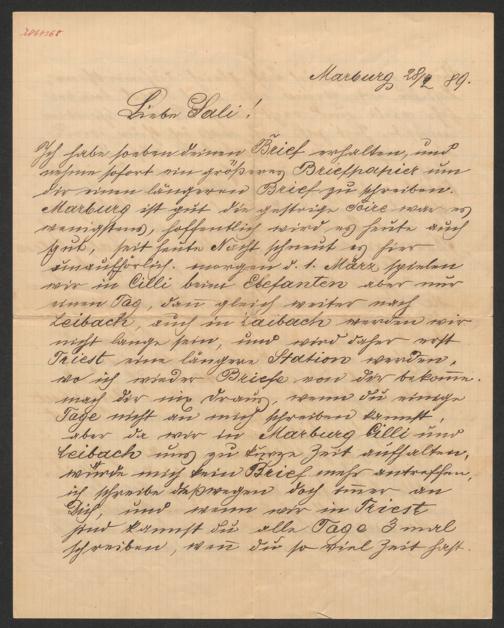 Marburg 28/2 89.
Liebe Sali!
Ich habe soeben deinen Brief erhalten, und
nehme sofort ein größeres Briefpapier um
dir einen längeren Brief zu schreiben.
Marburg ist gut die gestrige Soire war es
wenigstens, hoffentlich wird es heute auch
gut, seit heute Nacht schneut es hier
unaufhörlich. morgen d. 1. März spielen
wir in Cilli beim Elefanten aber nur
einen Tag, dan gleich weiter nach
Leibach, auch in Laibach werden wir
nicht lange sein, und wird daher erst
Triest eine längere Station werden,
wo ich wieder Briefe von dir bekomme.
mach dir nix draus, wenn du einige
Tage nicht an mich schreiben kannst,
aber da wir in Marburg Cilli und
Leibach uns zu kurze Zeit aufhalten,
würde mich kein Brief mehr antreffen,
ich schreibe deßwegen doch immer an
Dich, und wenn wir in Triest
sind kannst du alle Tage 3 mal
schreiben, wen du so viel Zeit hast.